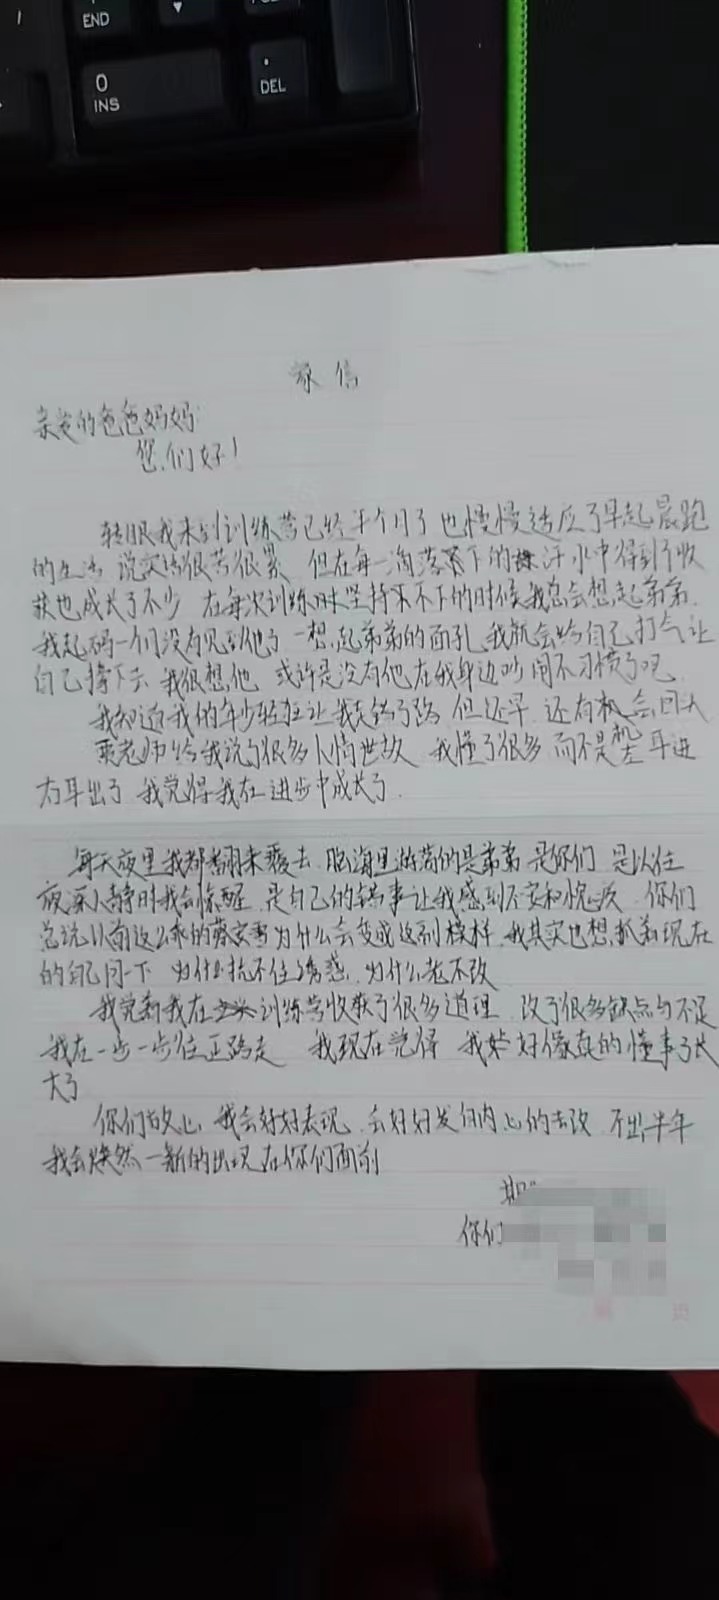 END
0
INS
.
DEL
家信
亲爱的爸爸妈妈:
您们好!
转眼我来到训练营已经半个月了 也慢慢适应了早起晨跑
的生活 说实话很苦很累 但在每一滴落下的汗水中得到了收
获也成长了不少 在每次训练时坚持不下的时候我总会想起弟弟
我起码一个月没有见到他了 一想起弟弟的面孔 我就会给自己打气让
自己撑下去 我很想他 或许是没有他在我身边吵闹不习惯了吧
我知道我的年少轻狂让我走错了路 但还早 还有机会回头
老师给我说了很多人情世故 我懂了很多 而不是左耳进
右耳出了 我觉得我在进步中成长了
每天夜里我都翻来覆去 脑海里游荡的是弟弟 是你们 是以往
夜深人静时我会惊醒 是自己的错事让我感到不安和愧疚 你们
总说以前这么乖的 为什么会变成这副模样 我其实也想抓着现在
的自己问一下 为什么抗不住诱惑 为什么老不改
我觉得我在训练营收获了很多道理 改了很多缺点与不足
我在一步一步往正路走 我现在觉得 我好像真的懂事了长
大了
你们放心 我会好好表现 会好好发自内心的去改 不出半年
我会焕然一新的出现在你们面前
你们
页